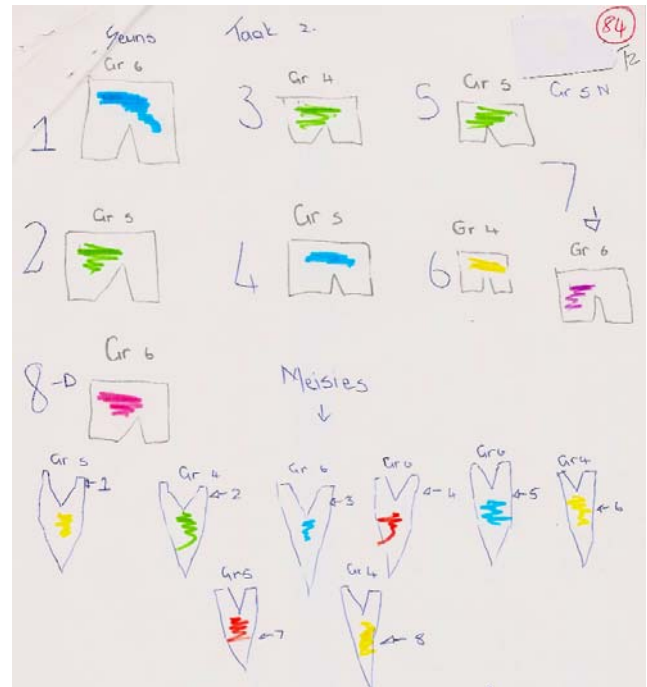 Seuns Taak 2. 84
T2
Gr 5 N
1 Gr 6
3 Gr 4
5 Gr 5
2 Gr 5
4 Gr 5
6 Gr 4
7 Gr 6
8 Gr 6
Meisies
Gr 5 1
Gr 4 2
Gr 6 3
Gr 6 4
Gr 6 5
Gr 4 6
Gr 5 7
Gr 4 8